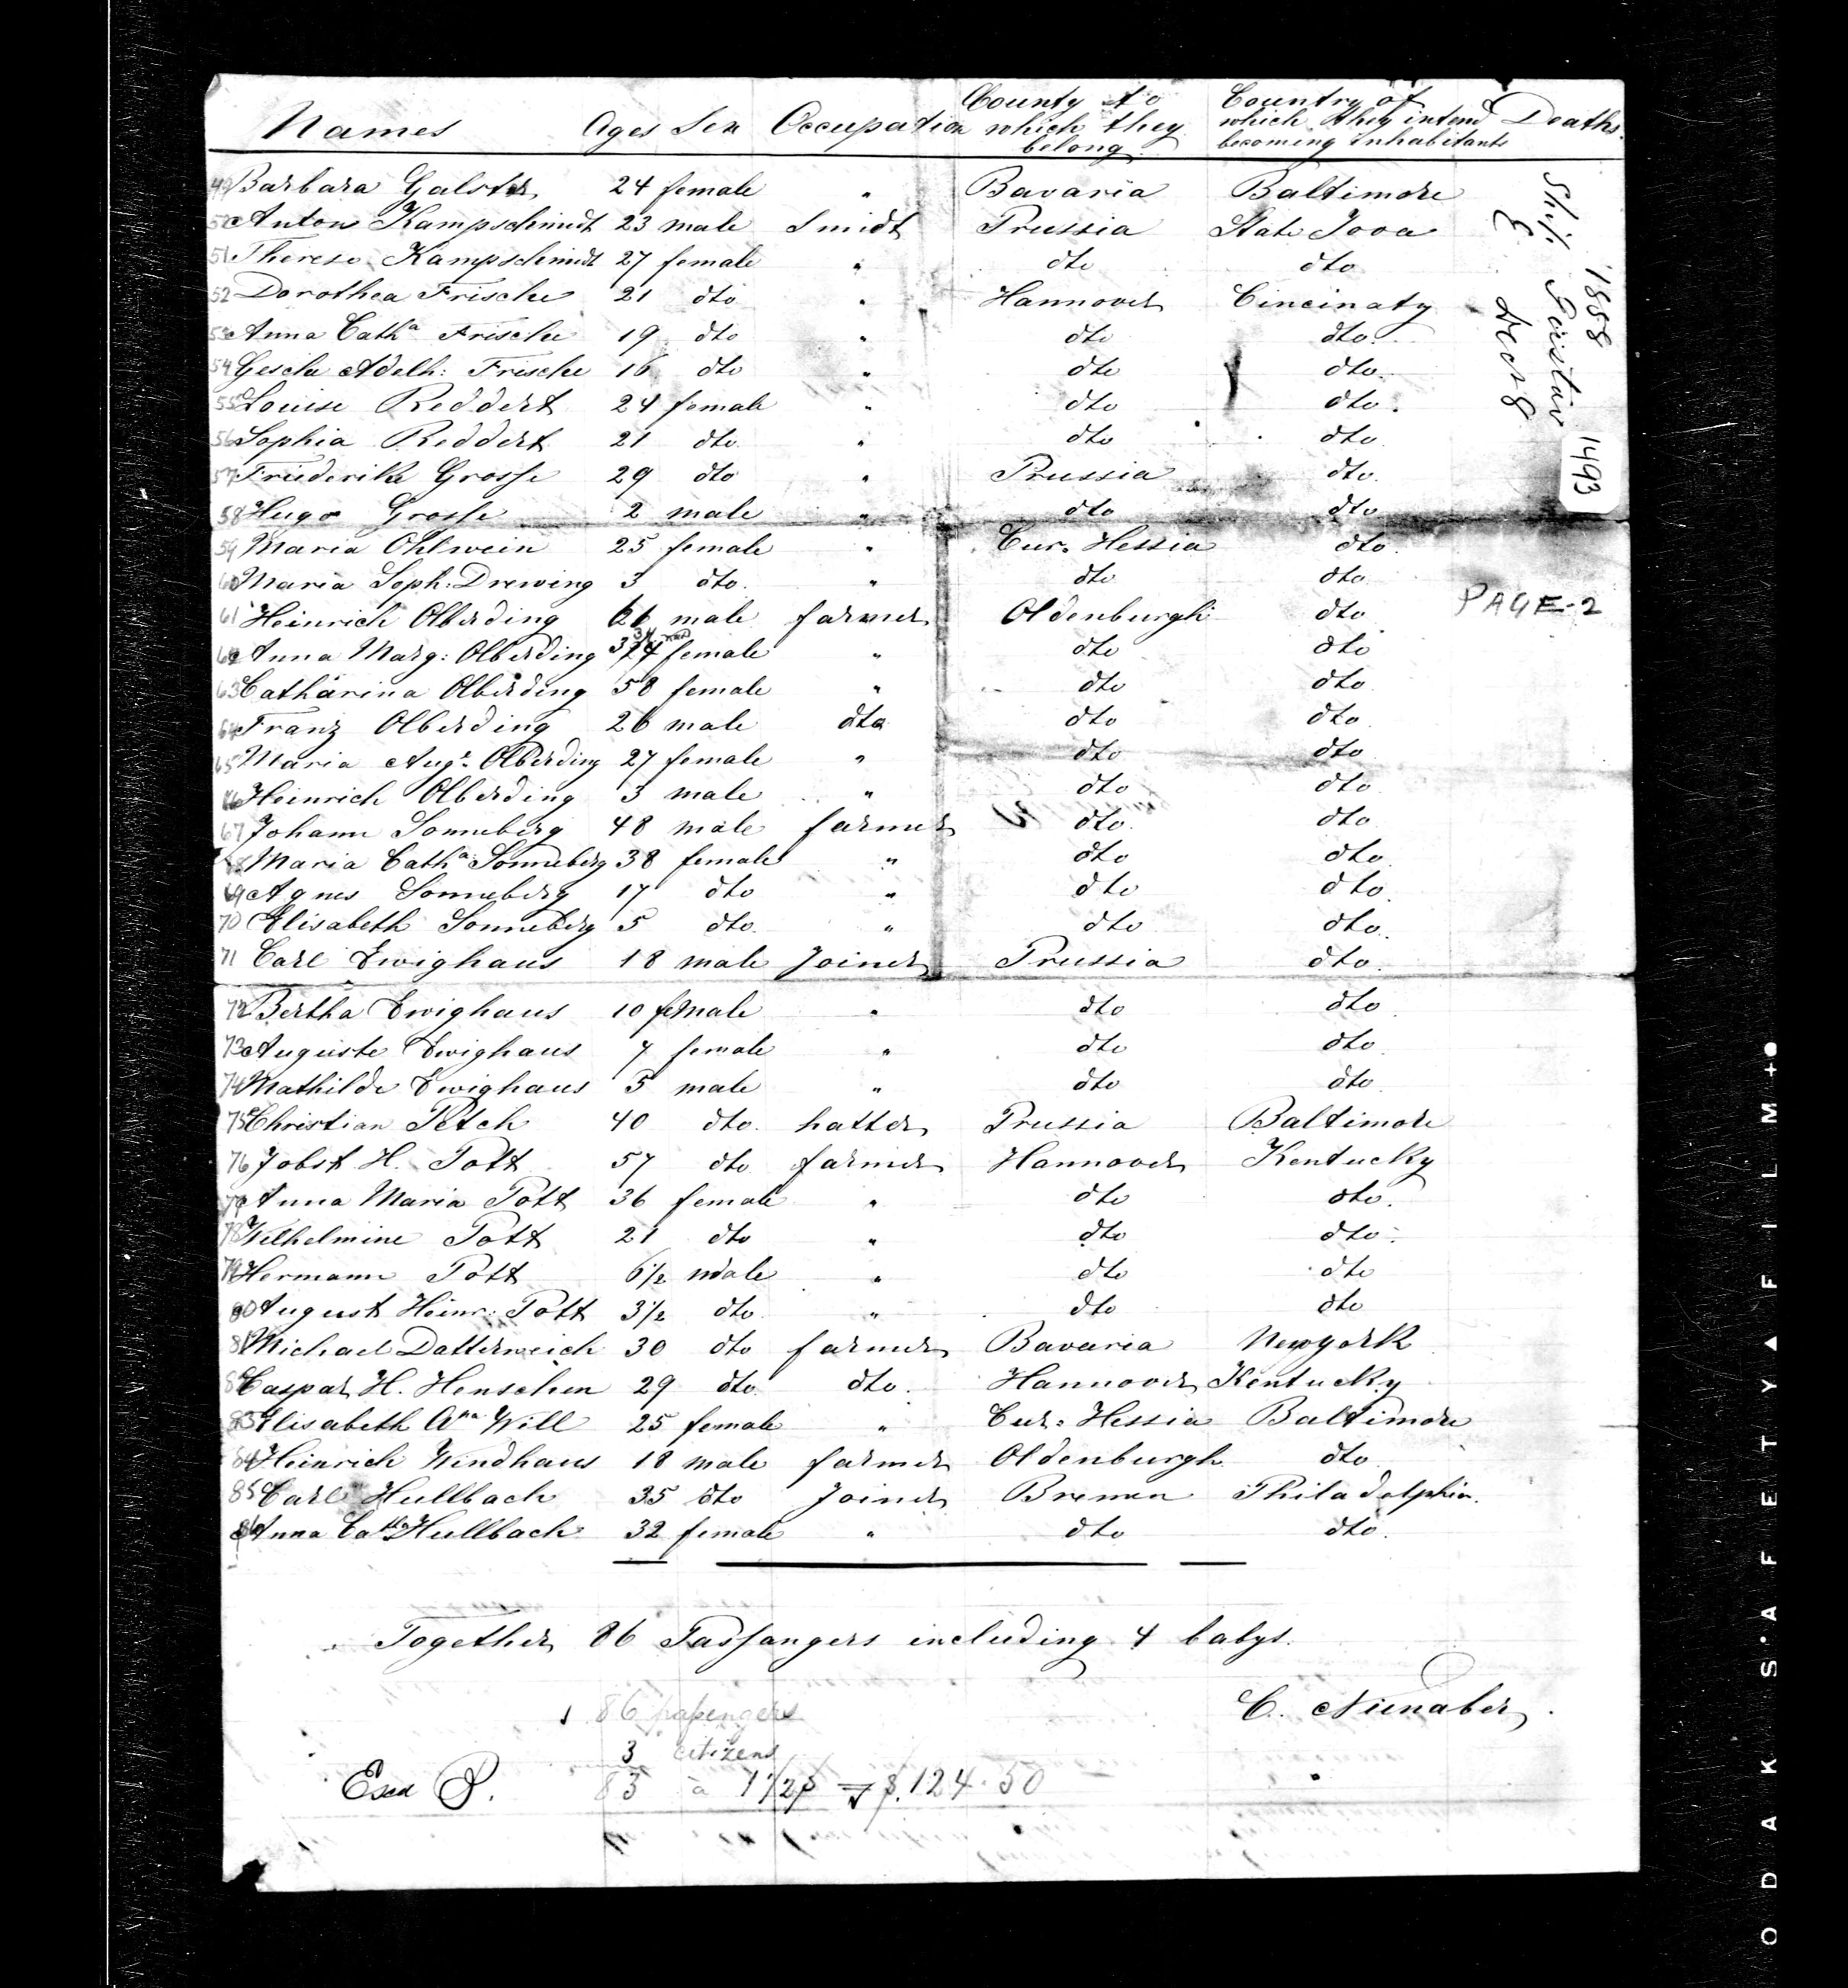 Names Ages Sex Occupation County to which they belong Country of which they intend becoming inhabitants Deaths.
49 Barbara Galster 24 female " Bavaria Baltimore
50 Anton Kampschmidt 23 male Smidt Prussia State Jova
51 Therese Kampschmidt 27 female " dto dto
52 Dorothea Frische 21 dto " Hannover Cincinaty
53 Anna Catha Frische 19 dto " dto dto.
54 Gesche Adelh: Frische 16 dto " dto dto.
55 Louise Reddert 24 female " dto dto.
56 Sophia Reddert 21 dto " dto dto.
57 Friederike Grosse 29 dto " Prussia dto.
58 Hugo Grosse 2 male " dto dto
59 Maria Ohlwein 25 female " Cur. Hessia dto.
60 Maria Soph: Drewing 3 dto. " dto dto.
61 Heinrich Olberding 66 male farmer Oldenburgh dto
62 Anna Marg: Olberding 34 female " dto dto
63 Catharina Olberding 58 female " dto dto.
64 Franz Olberding 26 male dto dto dto.
65 Maria Aug. Olberding 27 female " dto dto.
66 Heinrich Olberding 3 male " dto dto.
67 Johann Sonneberg 48 male farmer dto. dto
68 Maria Catha Sonneberg 38 female " dto dto.
69 Agnes Sonneberg 17 dto " dto dto.
70 Elisabeth Sonneberg 5 dto. " dto dto.
71 Carl Ewighaus 18 male Joiner Prussia dto.
72 Bertha Ewighaus 10 female " dto dto.
73 Auguste Ewighaus 7 female " dto dto.
74 Mathilde Ewighaus 5 male " dto dto.
75 Christian Petch 40 dto. hatter Prussia Baltimore
76 Jobst H. Pott 57 dto farmer Hannover Kentucky
77 Anna Maria Pott 36 female " dto dto.
78 Wilhelmine Pott 21 dto " dto dto.
79 Hermann Pott 6 1/2 male " dto dto
80 August Heinr: Pott 3 1/2 dto. " dto dto
81 Michael Datterweich 30 dto farmer Bavaria Newyork
82 Caspar H. Henschen 29 dto. dto. Hannover Kentucky
83 Elisabeth Ana Will 25 female " Cur: Hessia Baltimore
84 Heinrich Windhaus 18 male farmer Oldenburgh dto.
85 Carl Hullbach 35 dto Joiner Bremen Philadelphia.
86 Anna Catha Hullbach 32 female " dto dto.
Together 86 Passangers including 4 babys.
C. Nienaber.
86 passengers
3 citizens
83 à 1 1/2 $ = $.124.50
1858
Ship Gaustav
Dec 8
1493
PAGE-2
ODAK S'AFETY▲FILM